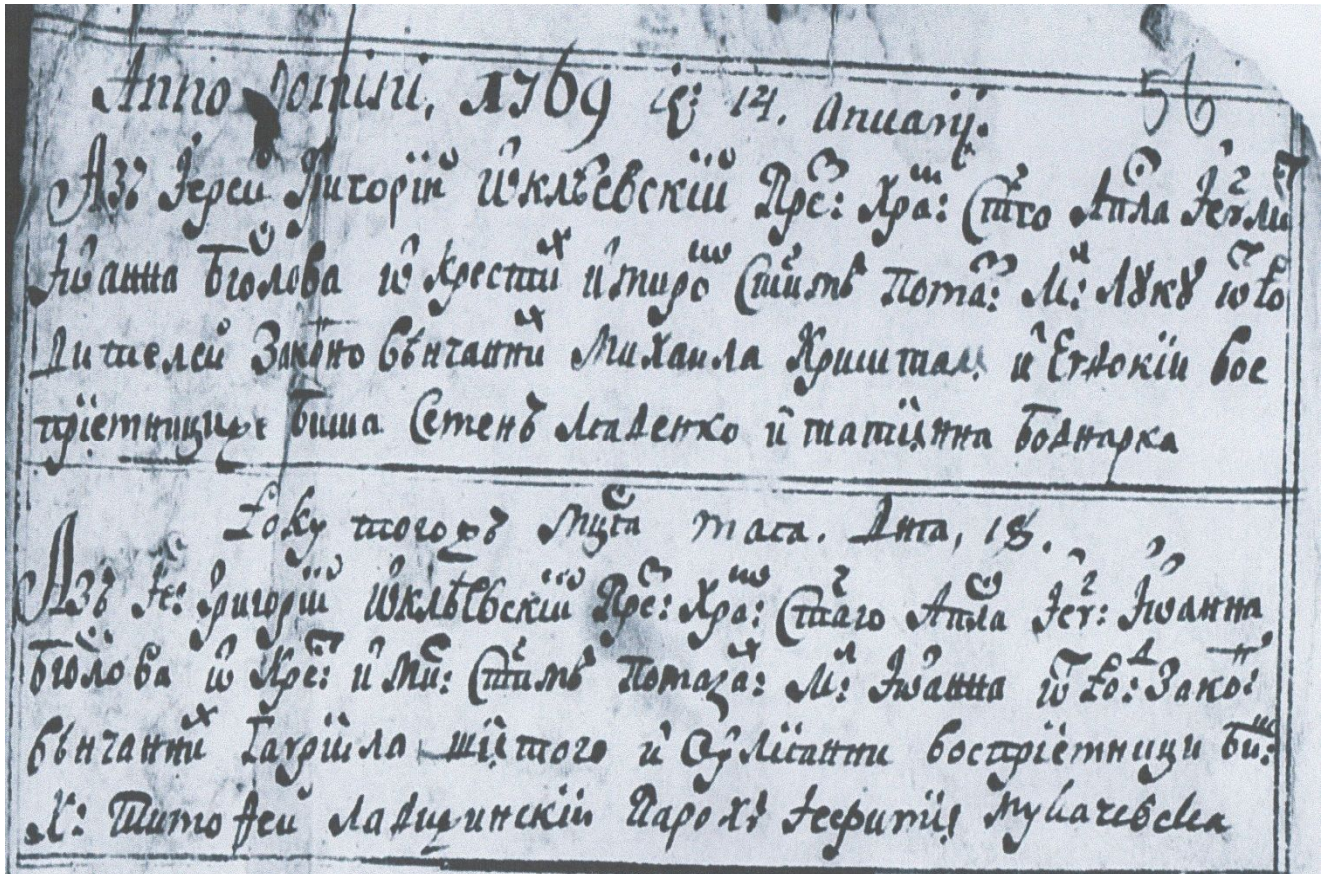 Anno Domini, 1769 14. Anuarij. 56
Азъ Іерей Григорій Ѡклѣевскій Пре: Хра: Стго Апла Іеглѣ
Іѡанна Бголова Ѡ Крести и миро Стимъ Пома: М: Лꙋкꙋ ѿ Ро
дителей Законо вѣнчанни Михаила Криштал и Евдокіи вос
пріемници Биша Семенъ и татіянна Боднарка
Року тогожъ Мца таса. Дня, 18.
Азъ Іе: Григорій Ѡклѣевскій Пре: Хра: Стаго Апла Іев: Іѡанна
Бголова ѡ Кре: и Ми: Стимъ Помаза: М: Іѡанна ѿ Ро: Зако:
вѣнчанни Гавріила того и Оулянни воспріемници Би:
Тимофей Ладижинскій Парохъ Іеѳимія